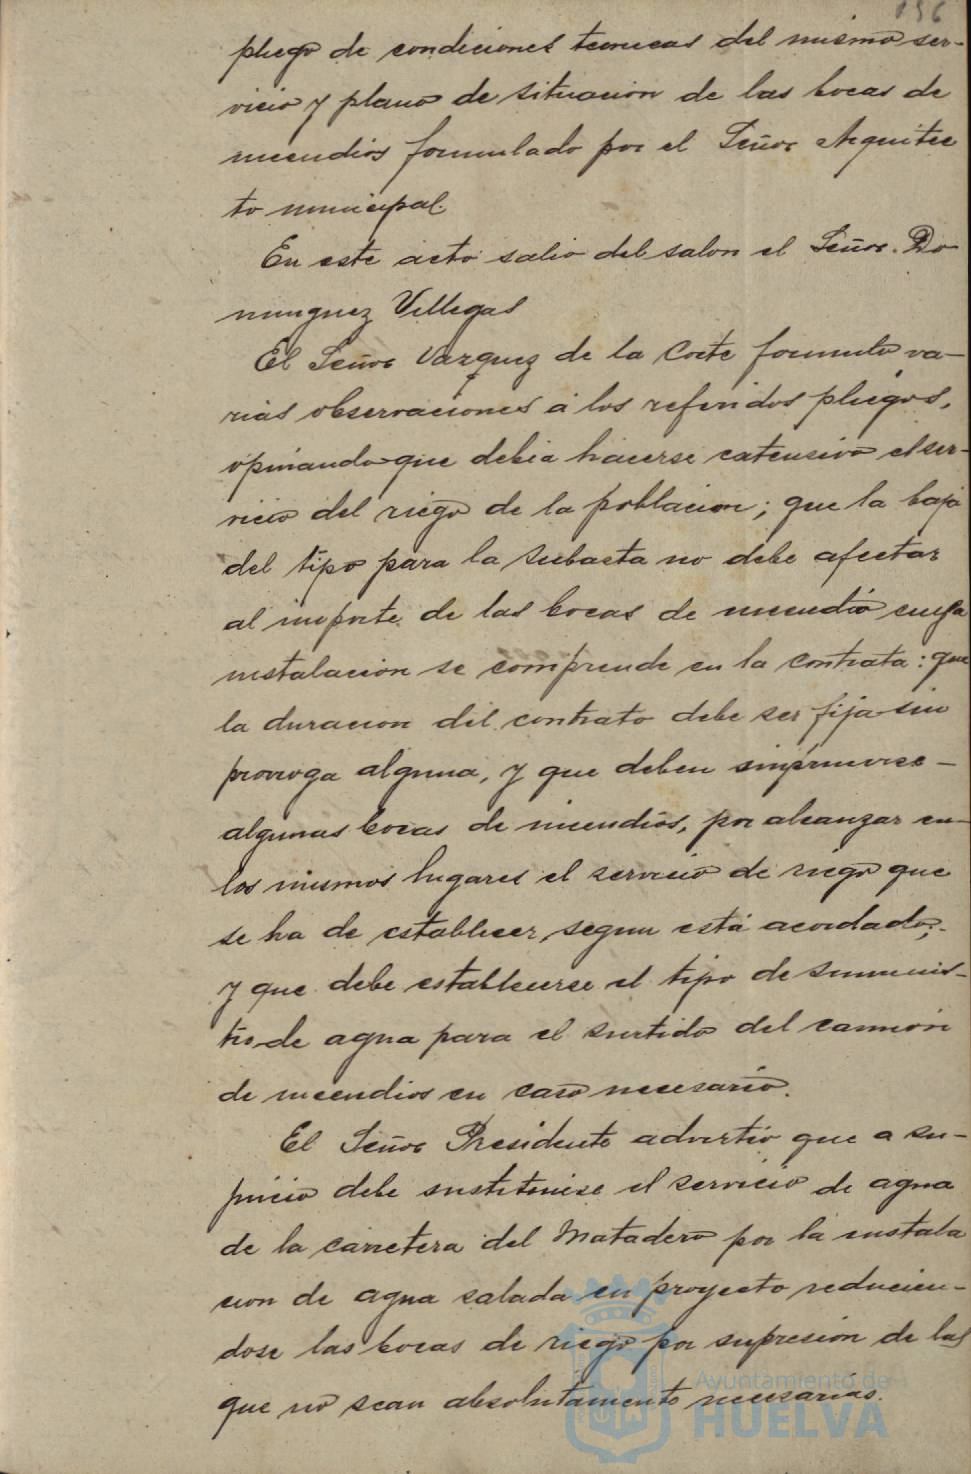 156
pliego de condiciones tecnicas del mismo ser-
vicio y plano de situacion de las bocas de
incendios formulado por el Señor Arquitec
to municipal.
En este acto salio del salon el Señor Do
minguez Villegas
El Señor Vazquez de la Corte formuló va-
rias observaciones á los referidos pliegos,
opinando que debia hacerse extensivo el ser-
vicio del riego de la poblacion; que la baja
del tipo para la subasta no debe afectar
al importe de las bocas de incendio cuya
instalacion se comprende en la contrata: que
la duracion del contrato debe ser fija sin
prorroga alguna, y que deben suprimirse
algunas bocas de incendios, por alcanzar en
los mismos lugares el servicio de riego que
se ha de establecer, segun está acordado;
y que debe establecerse el tipo de suminis-
tro de agua para el surtido del camion
de incendios en caso necesario.
El Señor Presidente advirtió que a su-
juicio debe sustituirse el servicio de agua
de la carretera del Matadero por la instala
cion de agua salada en proyecto reducien-
dose las bocas de riego por supresion de las
que no sean absolutamente necesarias.
Ayuntamiento de
HUELVA